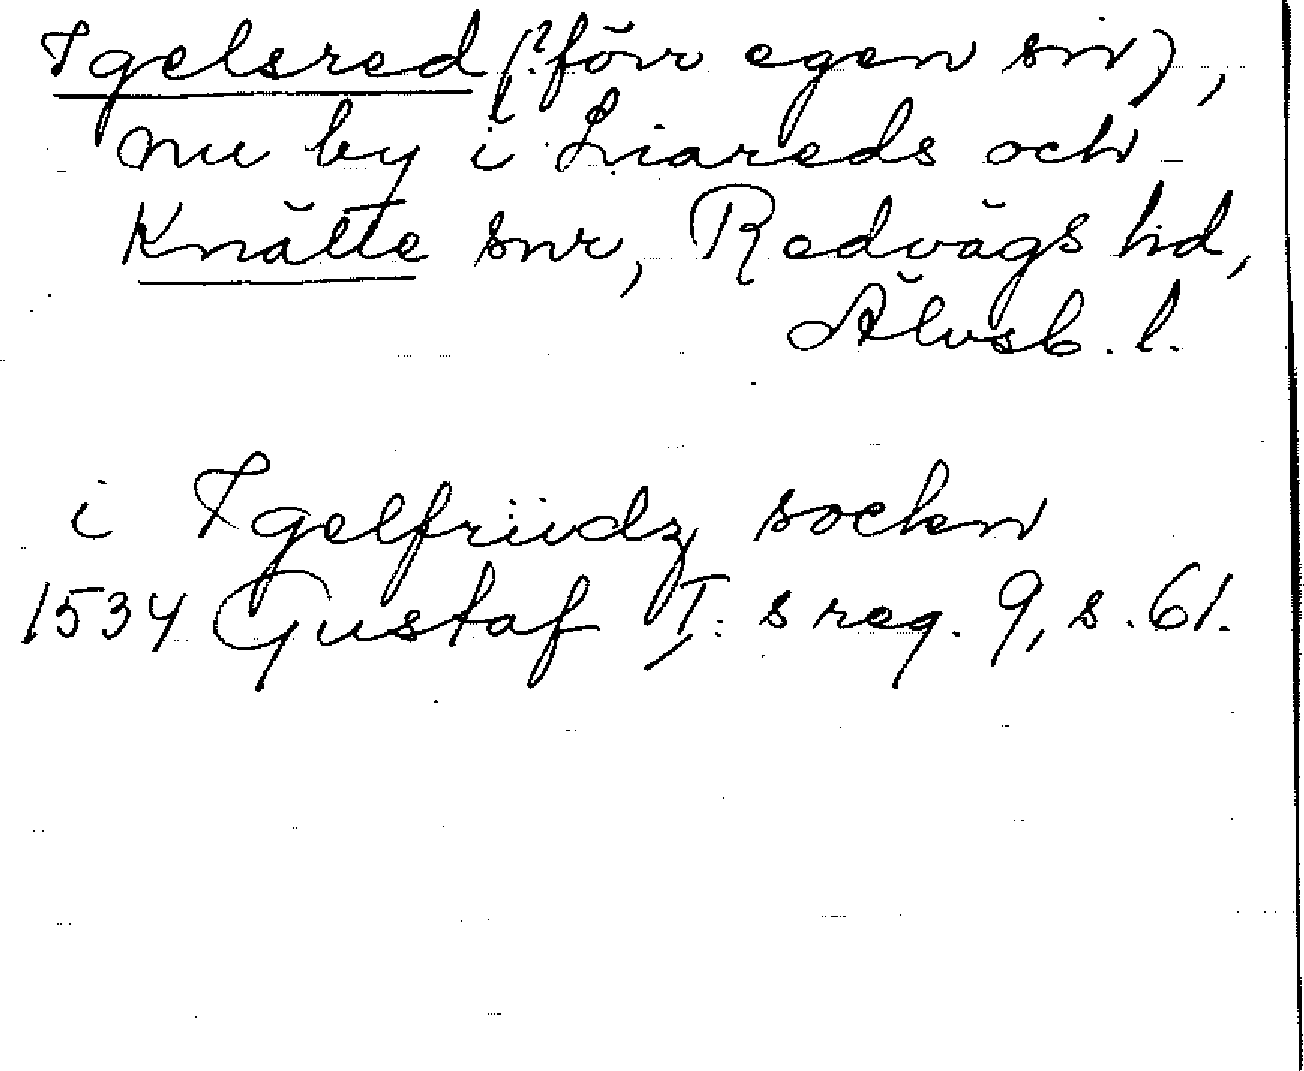 Igelsred (? förr egen sn),
nu by i Liareds och
Knätte snr, Redvägs hd,
Älvsb. l.
i Igelfriidz sochen
1534 Gustaf I:s reg. 9, s. 61.